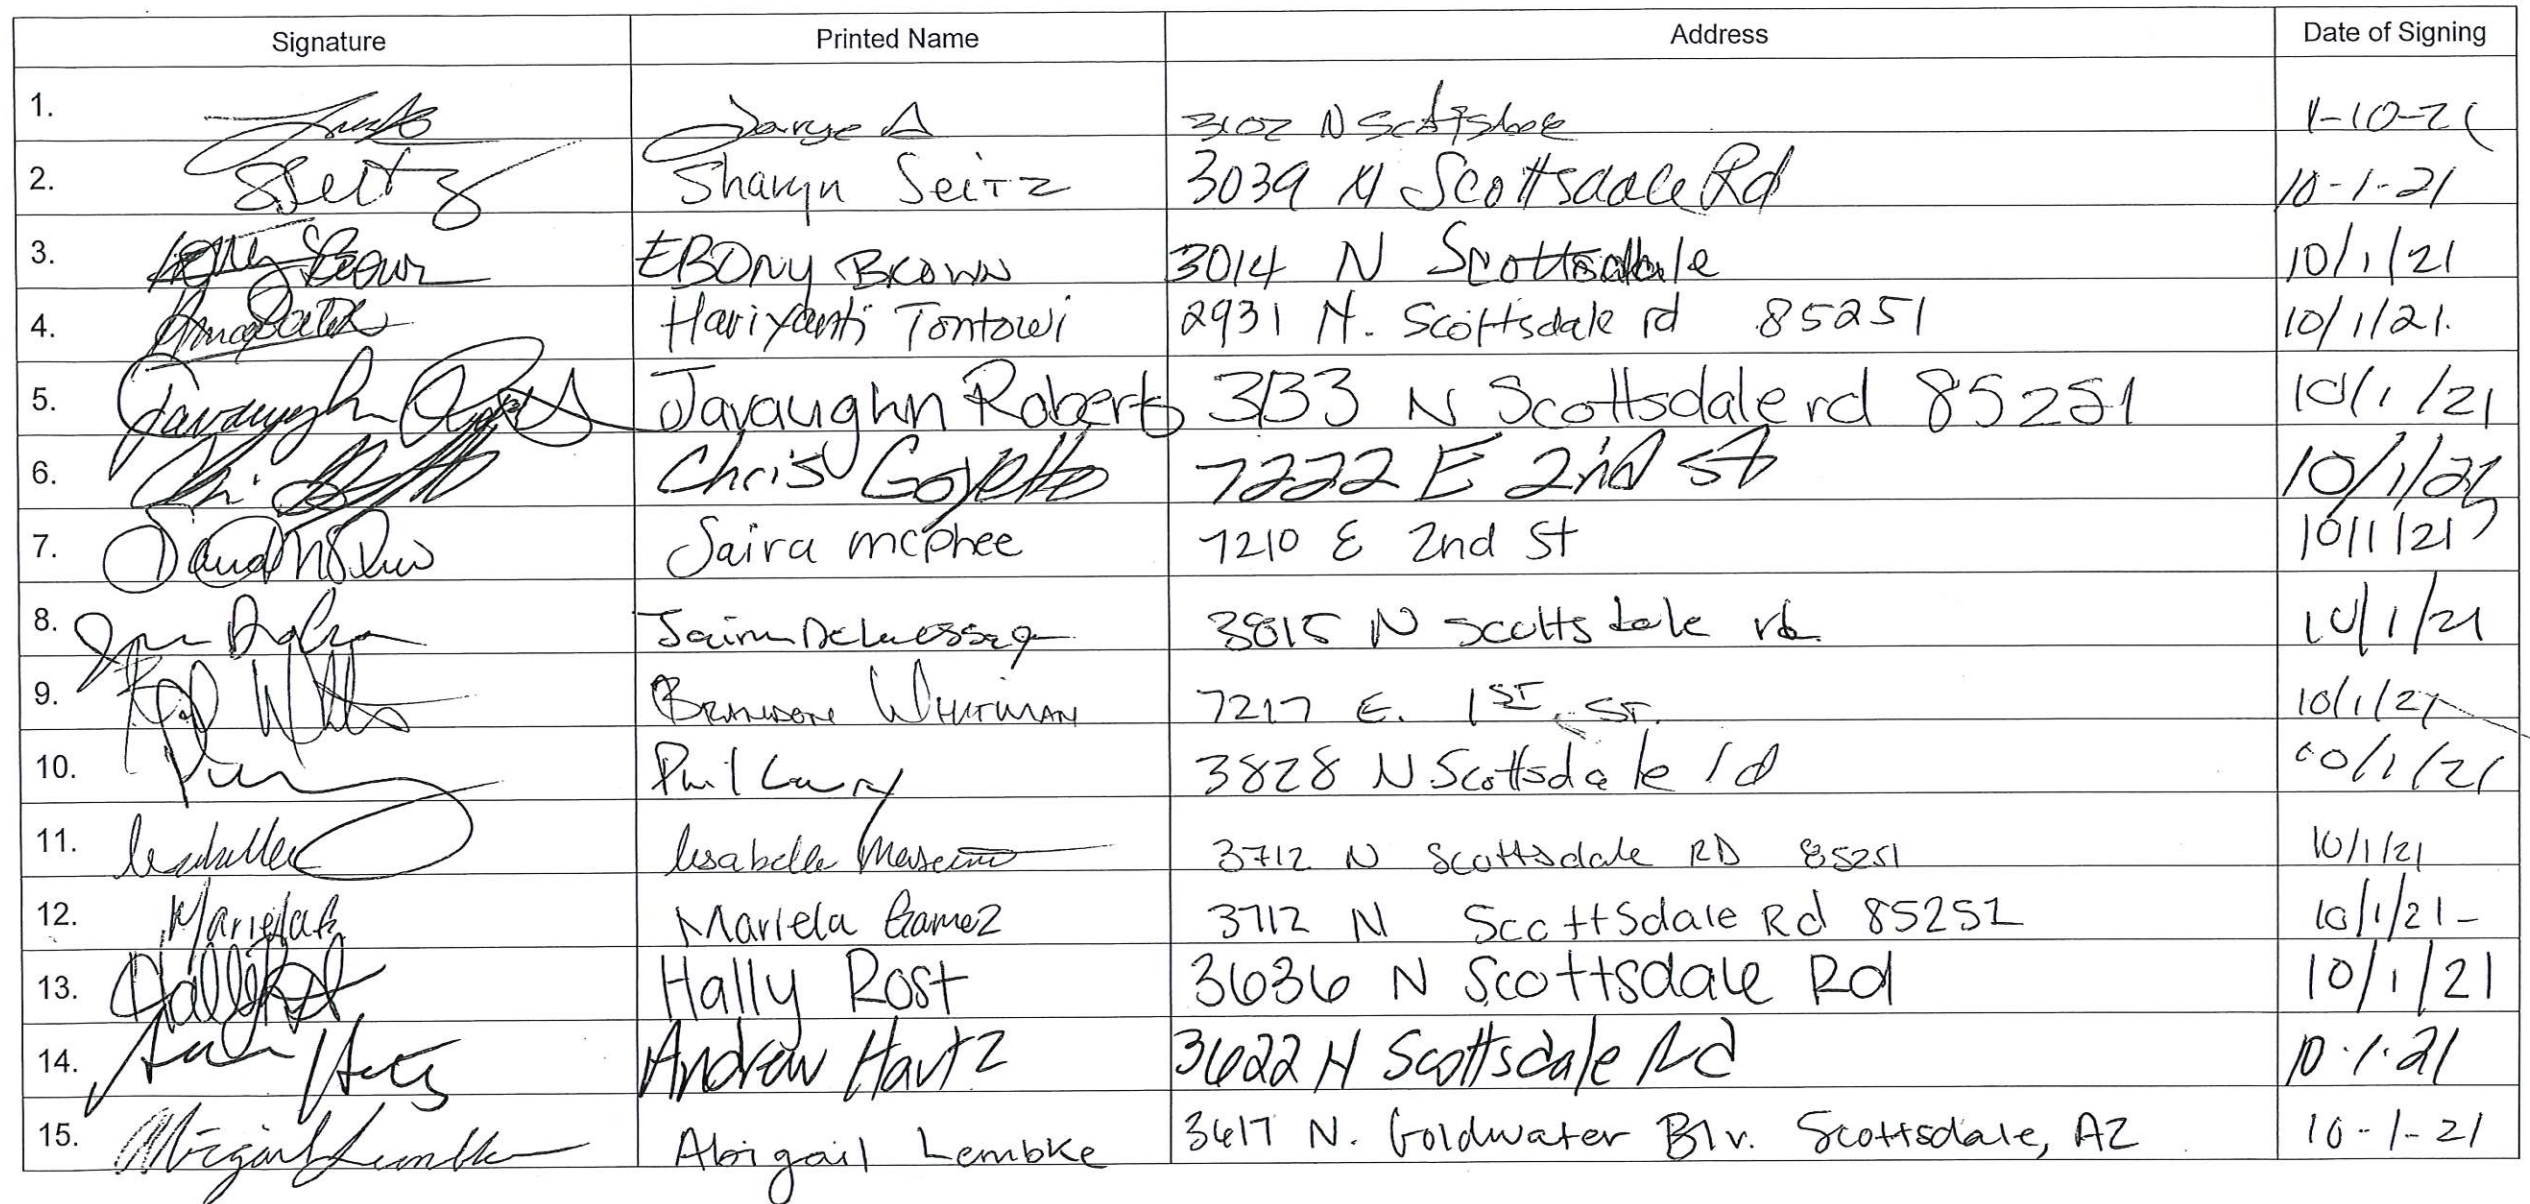 Signature Printed Name Address Date of Signing
1. 3102 N 1-10-21
2. SSeitz Sharyn Seitz 3039 N Scottsdale Rd 10-1-21
3. Brown EBONY BROWN 3014 N Scottsdale 10/1/21
4. Hariyanti Tontowi 2931 N. Scottsdale rd 85251 10/1/21.
5. Javaughn Javaughn Roberts 3133 N Scottsdale rd 85251 10/1/21
6. Chris Goyette 7222 E 2nd st 10/1/21
7. Saira mcphee 7210 E 2nd st 10/1/21
8. 3815 N scottsdale rd. 10/1/21
9. BRANDON WHITMAN 7217 E. 1ST. ST. 10/1/21
10. Phil 3828 N Scottsdale rd 10/1/21
11. Isabelle 3712 N Scottsdale RD 85251 10/1/21
12. Mariela Mariela Gamez 3712 N Scottsdale Rd 85251 10/1/21
13. Hally Rost 3636 N Scottsdale Rd 10/1/21
14. Andrew Hartz 3622 N Scottsdale Rd 10.1.21
15. Abigail Lembke Abigail Lembke 3617 N. Goldwater Blv. Scottsdale, AZ 10-1-21